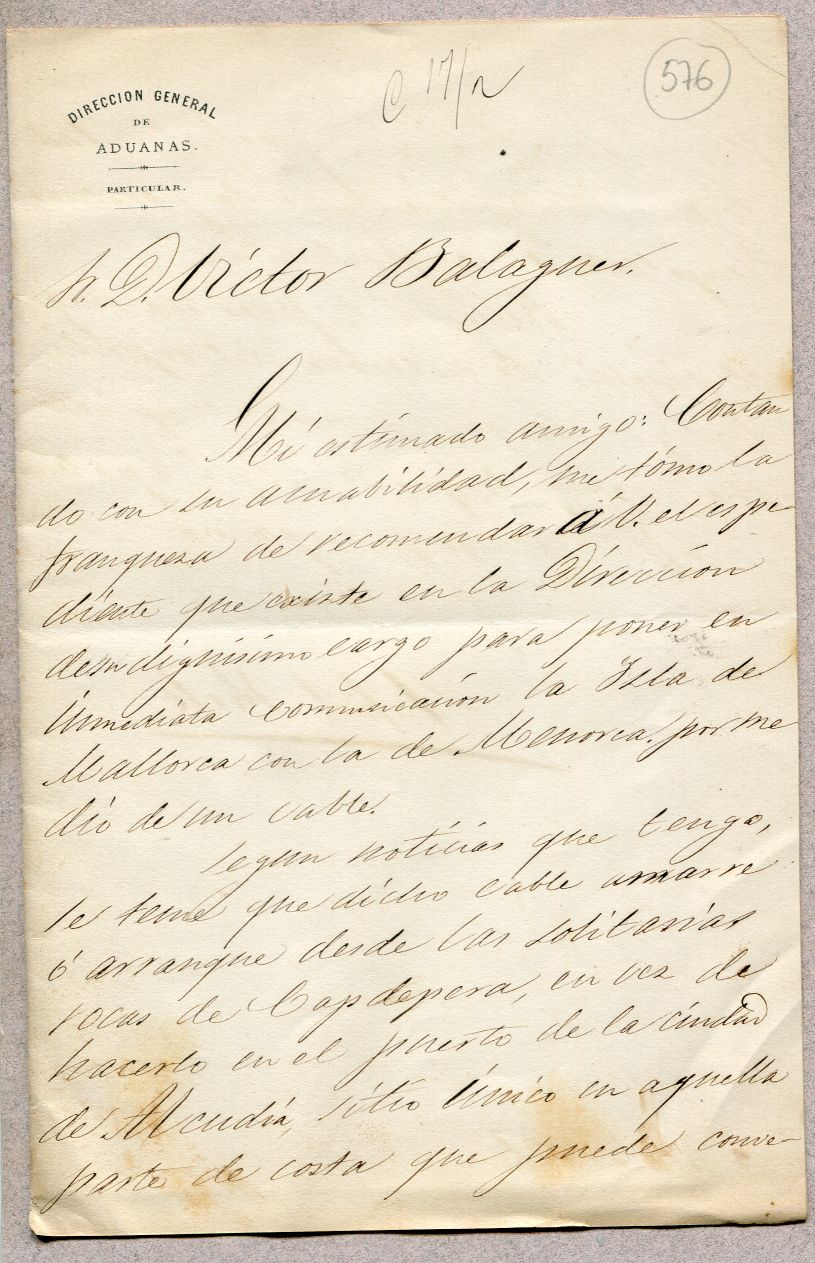 576
C 17/n
DIRECCION GENERAL
DE
ADUANAS.
PARTICULAR.
Sr. D. Víctor Balaguer.
Mi estimado amigo: Contan
do con su amabilidad, me tómo la
franqueza de recomendar á V. el espe
diente que existe en la Dirección
de su dignísimo cargo para poner en
inmediata comunicación la Isla de
Mallorca con la de Menorca, por me
dio de un cable.
Segun noticias que tengo,
se teme que dicho cable amarre
ó arranque desde las solitarias
rocas de Capdepera, en vez de
hacerlo en el puerto de la ciudad
de Alcudia, sitio único en aquella
parte de costa que puede conve-